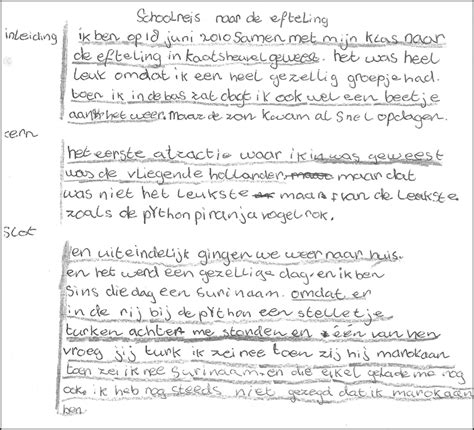 Schoolreis naar de efteling
inleiding
ik ben op 18 juni 2010 samen met mijn klas naar
de efteling in kaatsheuvel geweest. het was heel
leuk omdat ik een heel gezellig groepje had.
toen ik in de bas zat dagt ik ook wel een beetje
aanhet weer. maar de zon kwam al snel opdagen.
cern
het eerste atractie waar ik in was geweest
was de vliegende hollander, maar dat
was niet het leukste maar 1 van de leukste
zoals de python piranja vogel rok.
Slot
en uiteindelijk gingen we weer naar huis.
en het werd een gezellige dag. en ik ben
sins die dag een Surinaam. omdat er
in de rij bij de python een stelletje
turken achter me stonden en één van hen
vroeg jij turk ik zei nee toen zij hij marokaan
toen zei ik nee Surinaam. en die eikel gelade me nog
ook. ik heb nog steeds niet gezegd dat ik marokaan
ben.